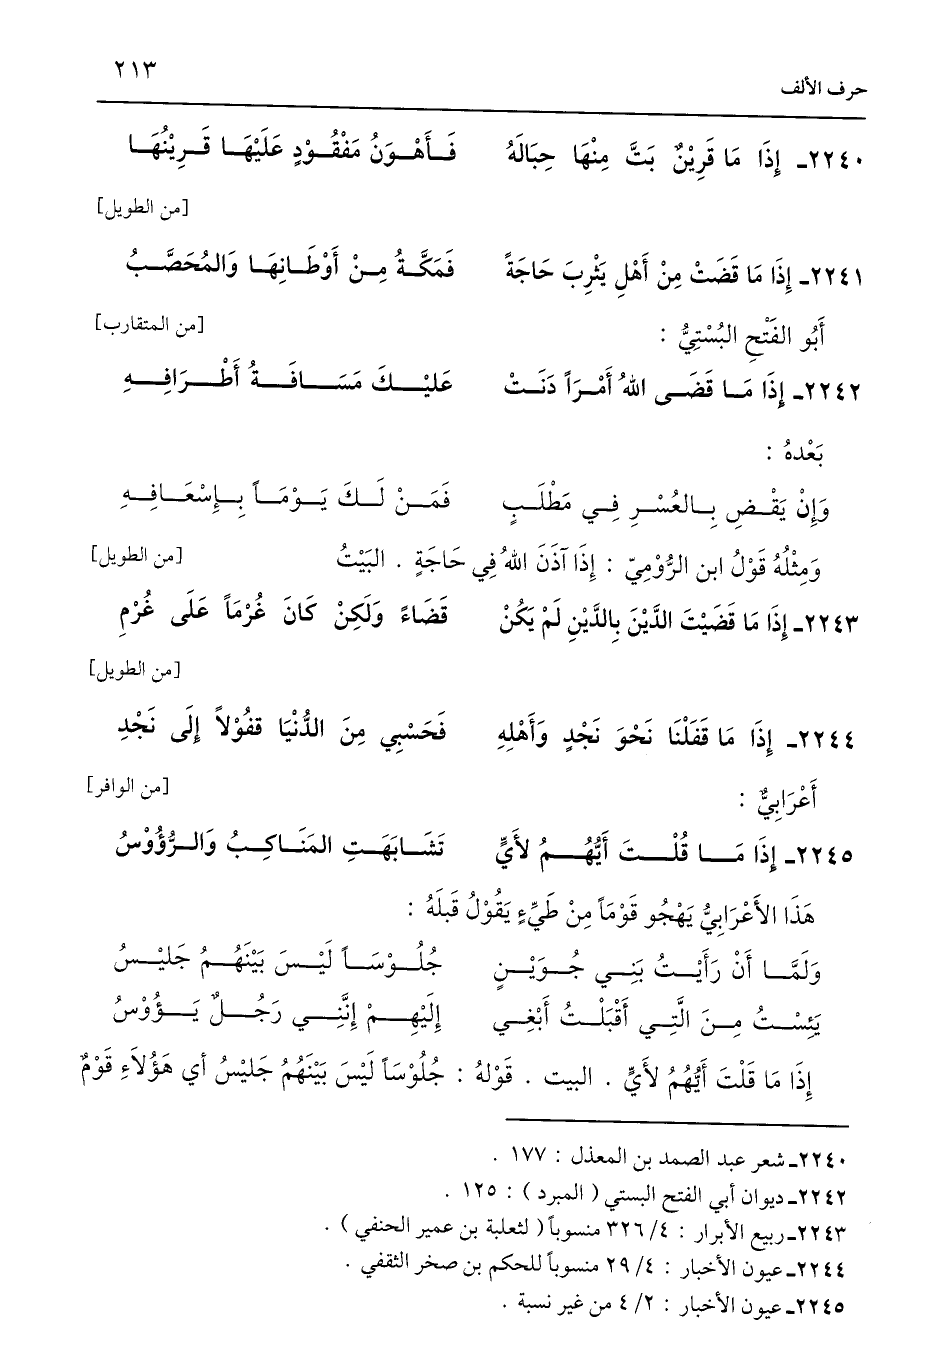 ٢١٣
حرف الألف
٢٢٤٠ـ إِذَا مَا قَرِيْنٌ بَتَّ مِنْهَا حِبَالَهُ فَـأَهْـوَنُ مَفْقُـوْدٍ عَلَيْهَـا قَـرِيْنُهَـا
[من الطويل]
٢٢٤١ـ إِذَا مَا قَضَتْ مِنْ أَهْلِ يَثْرِبَ حَاجَةً فَمَكَّـةُ مِـنْ أَوْطَـانِهَـا وَالمُحَصَّـبُ
[من المتقارب]
أَبُو الفَتْحِ البُسْتِيُّ :
٢٢٤٢ـ إِذَا مَـا قَضَـى اللهُ أَمْـرَاً دَنَـتْ عَلَيْـكَ مَسَـافَـةُ أَطْـرَافِـهِ
بَعْدهُ :
وَإِنْ يَقْـضِ بِـالعُسْـرِ فِـي مَطْلَـبٍ فَمَـنْ لَـكَ يَـوْمَـاً بِـإِسْعَـافِـهِ
وَمِثْلُهُ قَوْلُ ابن الرُّوْمِيّ : إِذَا آذَنَ اللهُ فِي حَاجَةٍ . البَيْتُ
[من الطويل]
٢٢٤٣ـ إِذَا مَا قَضَيْتَ الدَّيْنَ بِالدَّيْنِ لَمْ يَكُنْ قَضَاءً وَلَكِنْ كَانَ غُرْمَاً عَلَى غُرْمِ
[من الطويل]
٢٢٤٤ـ إِذَا مَا قَفَلْنَا نَحْوَ نَجْدٍ وَأَهْلِهِ فَحَسْبِي مِنَ الدُّنْيَا قفُوْلاً إِلَى نَجْدِ
[من الوافر]
أَعْرَابِيٌّ :
٢٢٤٥ـ إِذَا مَـا قُلْـتَ أَيُّهُـمُ لأَيٍّ تَشَـابَهَـتِ المَنَـاكِـبُ وَالـرُّؤُوْسُ
هَذَا الأَعْرَابِيُّ يَهْجُو قَوْمَاً مِنْ طَيِّءٍ يَقُوْلُ قَبلَهُ :
وَلَمَّـا أَنْ رَأَيْـتُ بَنِـي جُـوَيْـنٍ جُلُـوْسَـاً لَيْـسَ بَيْنَهُـمُ جَليْـسُ
يَئِسْـتُ مِـنَ الَّتِـي أَقْبَلْـتُ أَبْغِـي إِلَيْهِـمْ إِنَّنِـي رَجُـلٌ يَـؤُوْسُ
إِذَا مَا قَلْتَ أَيُّهُمُ لأَيٍّ . البيت . قَوْلهُ : جُلُوْسَاً لَيْسَ بَيْنَهُمُ جَليْسُ أي هَؤُلاَءِ قَوْمٌ
٢٢٤٠ـ شعر عبد الصمد بن المعذل : ١٧٧ .
٢٢٤٢ـ ديوان أبي الفتح البستي ( المبرد ) : ١٢٥ .
٢٢٤٣ـ ربيع الأبرار : ٤/ ٣٢٦ منسوباً ( لثعلبة بن عمير الحنفي ) .
٢٢٤٤ـ عيون الأخبار : ٤/ ٢٩ منسوباً للحكم بن صخر الثقفي .
٢٢٤٥ـ عيون الأخبار : ٢/ ٤ من غير نسبة .